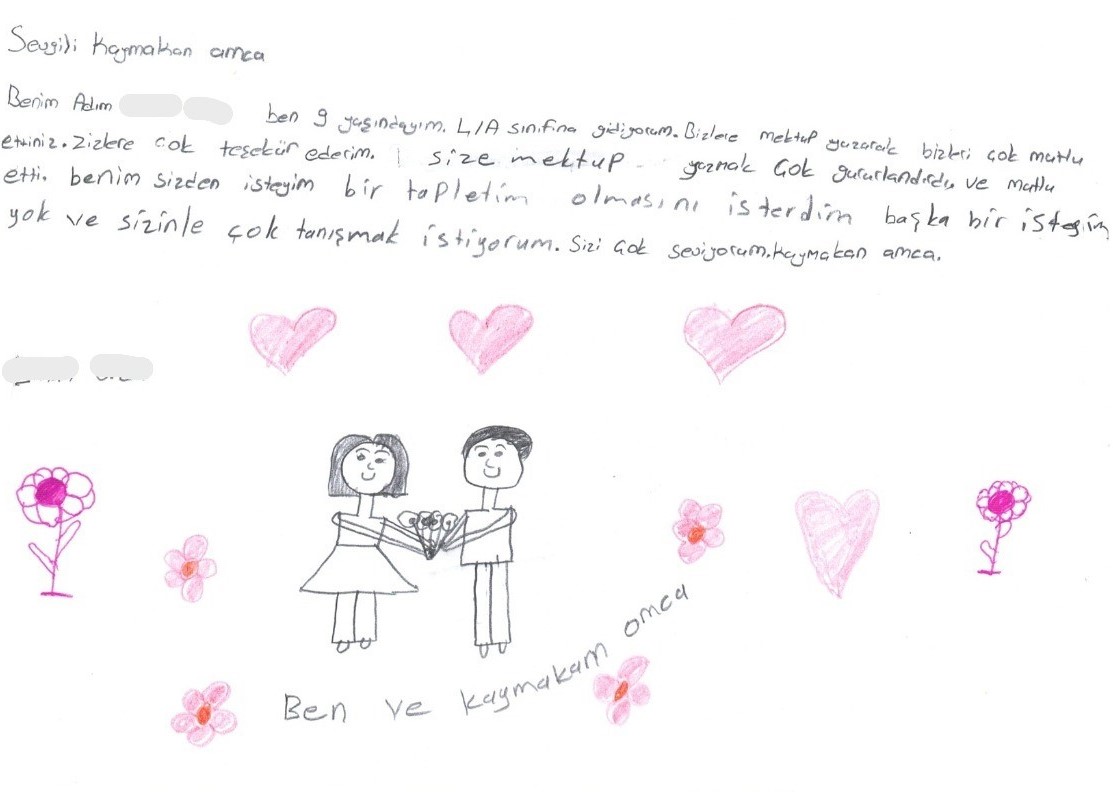 Sevgili Kaymakan amca
Benim Adım ben 9 yaşındayım. 4/A sınıfına gidiyorum. Bizlere mektup yazarak bizleri çok mutlu
ettiniz. Zizlere çok teşekür ederim. size mektup yazmak çok gururlandırdı, ve mutlu
etti. benim sizden isteyim bir tapletim olmasını isterdim başka bir isteğim
yok ve sizinle çok tanışmak istiyorum. Sizi çok seviyorum. Kaymakan amca.
Ben ve kaymakam amca